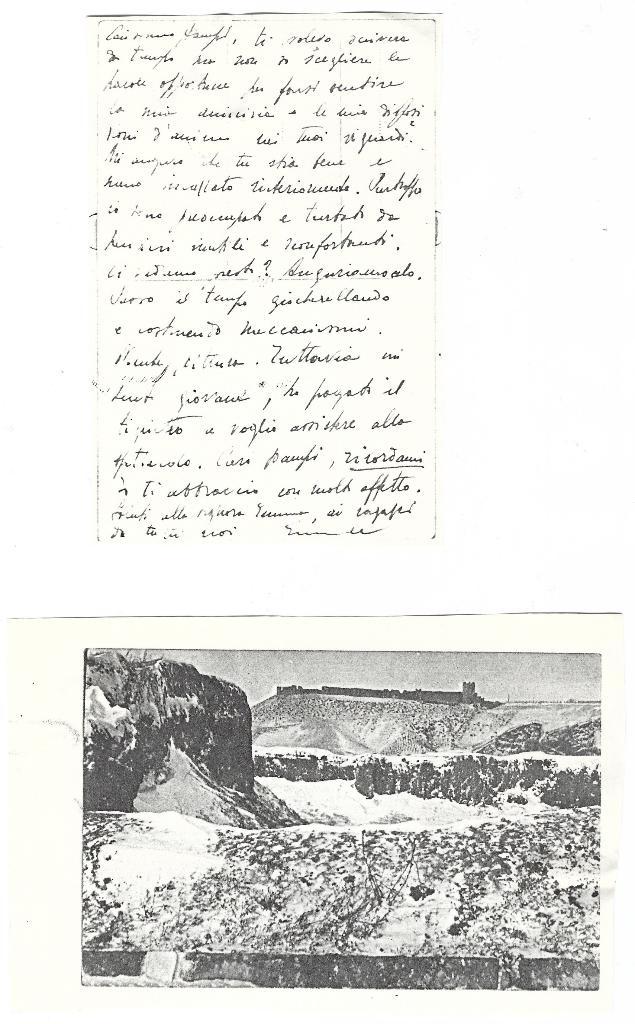 Carissimo Pampi, ti volevo scrivere
da tempo ma non so scegliere le
parole opportune per farti sentire
la mia amicizia e le mie disposi
zioni d'animo nei tuoi riguardi.
Mi auguro che tu stia bene e
meno interiormente. Purtroppo
io sono preoccupato e turbato da
pensieri inutili e sconfortanti.
Ci vediamo presto? Auguriamocelo.
il tempo giocherellando
e costruendo meccanismi.
Tuttavia mi
sento giovane, ho pagato il
biglietto e voglio assistere allo
spettacolo. Caro Pampi, ricordami
e ti abbraccio con molto affetto.
Saluti alla signora Emma, ai ragazzi
da tutti noi